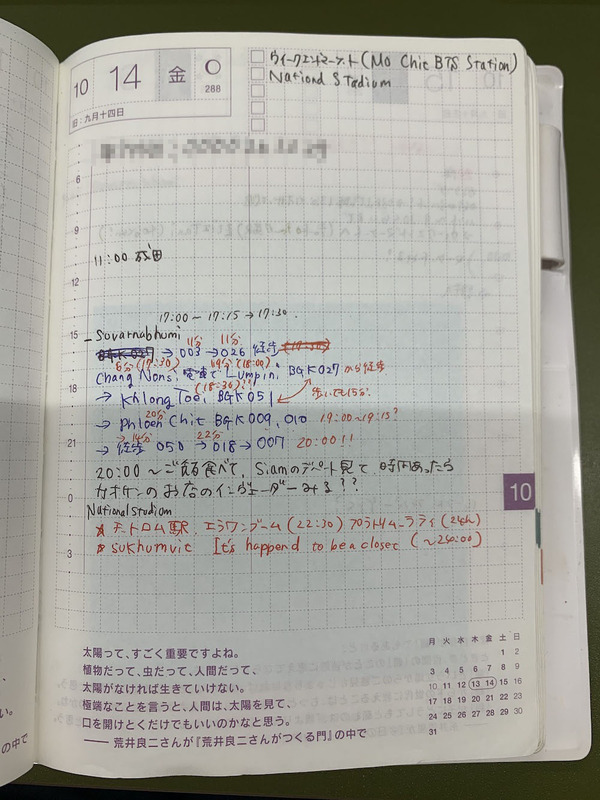 10 14 金
288
旧:九月十四日
ウィークエンドマーケット(Mo Chit BTS Station)
National Stadium
6
9
11:00 成田
12
17:00 ~ 17:15 → 17:30.
15
Suvarnabhumi
11分 11分
→ 003 → 026 徒歩
6分(17:30) 19分(18:00)
Chang Nonsi 電車で Lumpini BGK027 から徒歩
(18:30)??
18
→ Khlong Toei BGK051
歩いても15分
20分
→ Phloen Chit BGK009, 010 19:00~19:15?
→ 14分 22分
21
→ 徒歩 050 → 018 → 007 20:00!!
20:00 ~ ご飯食べて、Siamのデパート見て 時間あったら
0
カオケンのお店のインヴェーダーみる??
National Studiom
* チトロム駅. エラワンゲーム(22:30) プラトゥムーラティ(24h)
3
* Sukhumvit It's happend to be a closet (~24:00)
10
太陽って、すごく重要ですよね。
植物だって、虫だって、人間だって、
太陽がなければ生きていけない。
極端なことを言うと、人間は、太陽を見て、
口を開けとくだけでもいいのかなと思う。
── 荒井良二さんが『荒井良二さんがつくる門』の中で
月 火 水 木 金 土 日
1 2
3 4 5 6 7 8 9
10 11 12 13 14 15 16
17 18 19 20 21 22 23
24 25 26 27 28 29 30
31
い。
の中で